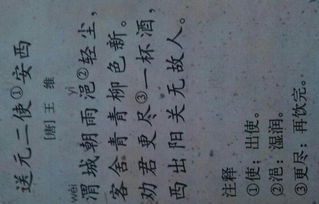 送元二使①安西
[唐] 王 维
wèi yì
渭城朝雨浥②轻尘，
客舍青青柳色新。
劝君更尽③一杯酒，
西出阳关无故人。
注释
①使：出使。
②浥：湿润。
③更尽：再饮完。